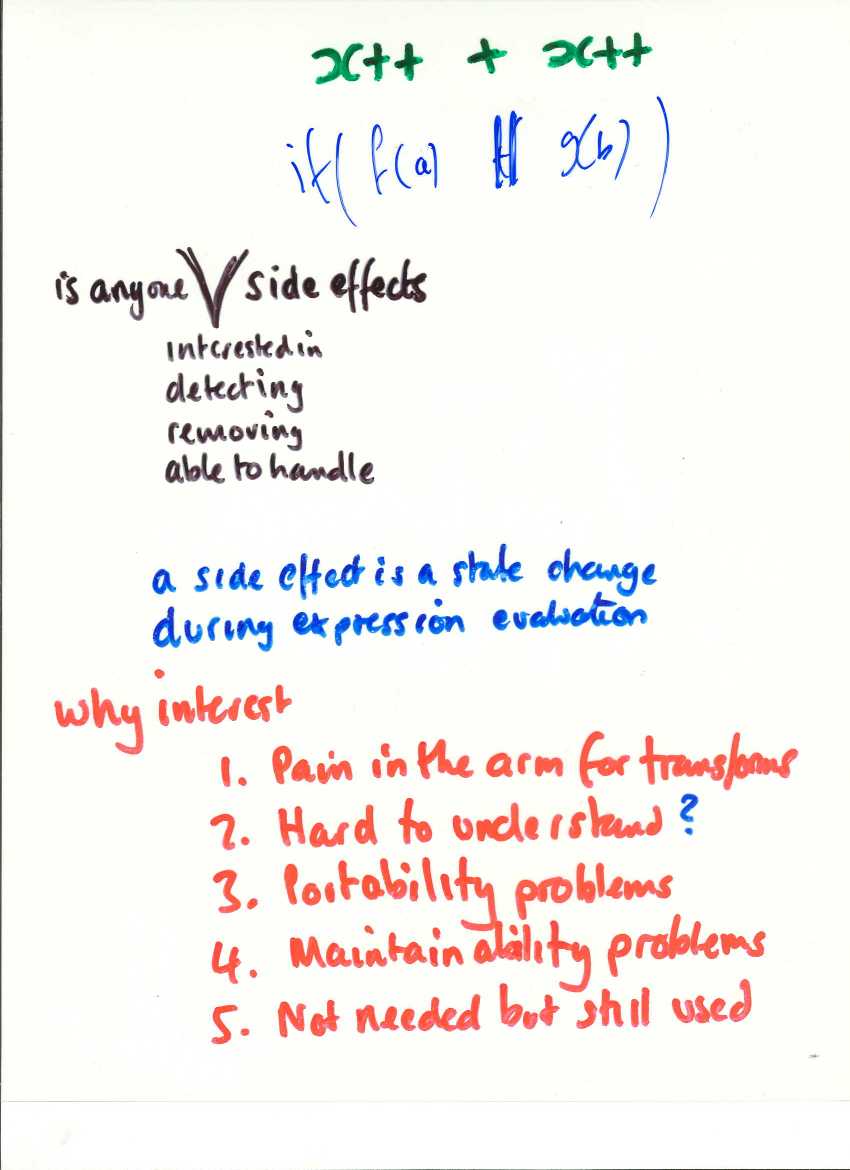 x++ + x++
if( f(a) || g(b) )
is anyone V side effects
interested in
detecting
removing
able to handle
a side effect is a state change
during expression evaluation
why interest
1. Pain in the arm for transforms
2. Hard to understand ?
3. Portability problems
4. Maintainability problems
5. Not needed but still used